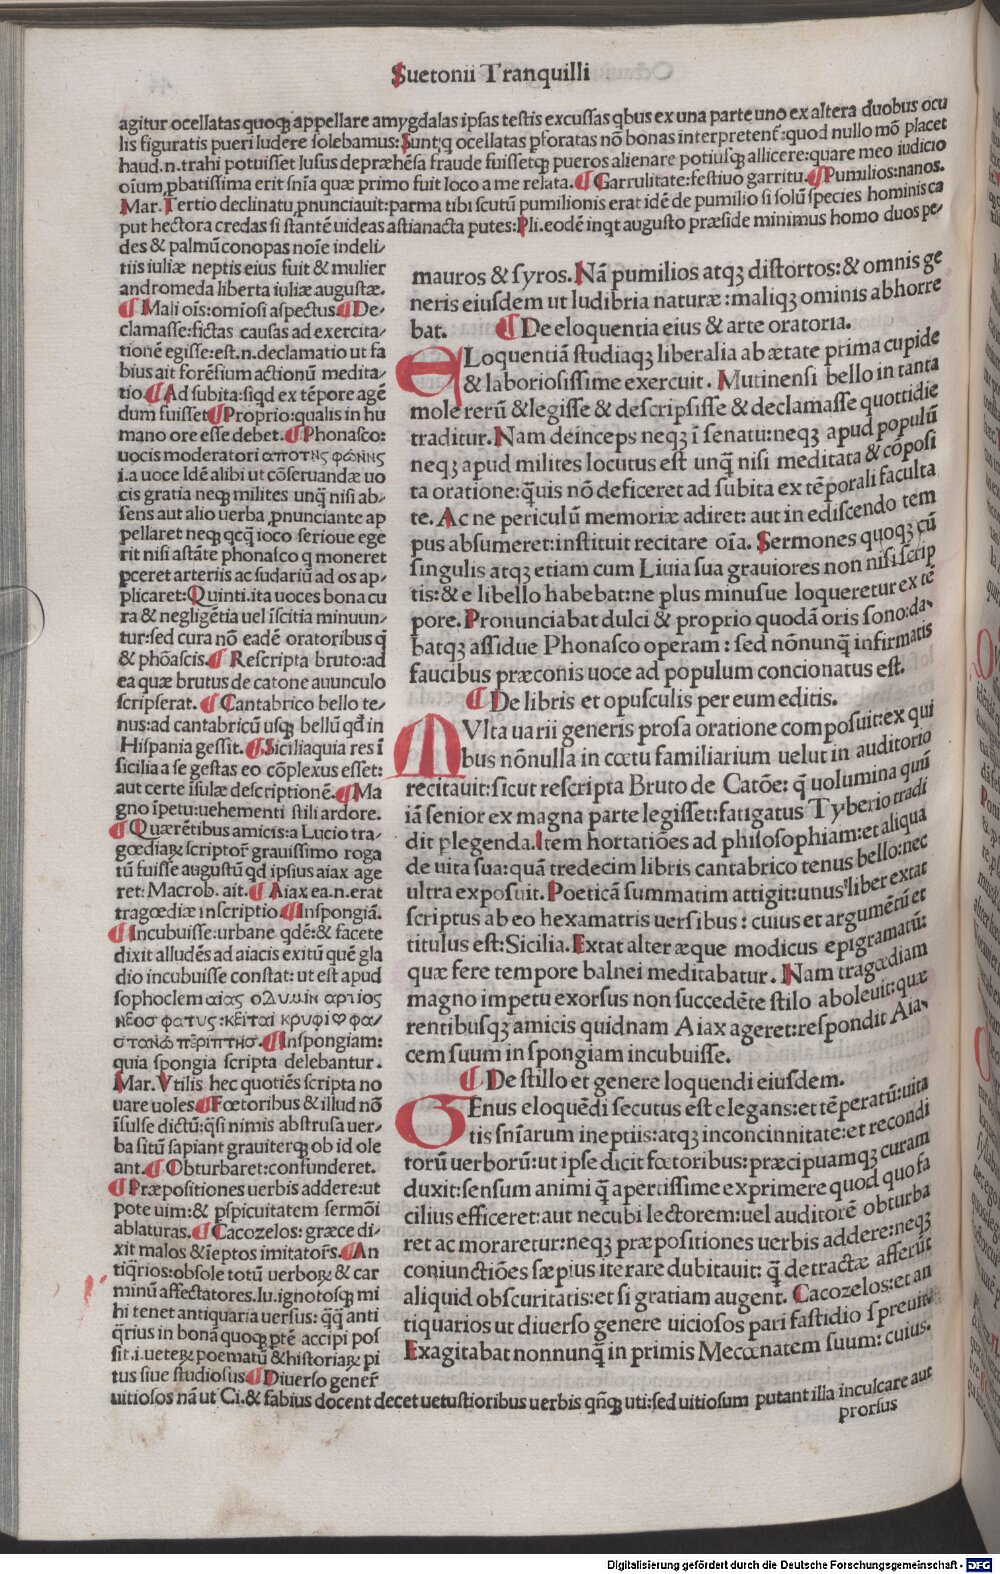 Suetonii Tranquilli
agitur ocellatas quoqꝫ appellare amygdalas ipsas testis excussas qbus ex una parte uno ex altera duobus ocu
lis figuratis pueri ludere solebamus: Sunt:q ocellatas pforatas nō bonas interpretent᷑:quod nullo mō placet
haud.n.trahi potuisset lusus depræhēsa fraude fuissetqꝫ pueros alienare potiusqꝫ allicere:quare meo iudicio
oīum ꝓbatissima erit snīa quæ primo fuit loco a me relata. ¶ Garrulitate:festiuo garritu. ¶ Pumilios:nanos.
Mar. Tertio declinatu ꝓnunciauit:parma tibi scutū pumilionis erat idē de pumilio si solū species hominis ca
put hectora credas si stantē uideas astianacta putes:Pli.eodē inqt augusto præside minimus homo duos pe-
des & palmū conopas noīe in deli-
tiis iuliæ neptis eius fuit & mulier
andromeda liberta iuliæ augustæ.
¶ Mali oīs:omīosi aspectus ¶ De-
clamasse:fictas causas ad exercita-
tionē egisse:est.n.declamatio ut fa
bius ait forēsium actionū medita-
tio. ¶ Ad subita:siqd ex tēpore agē
dum fuisset ¶ Proprio:qualis in hu
mano ore esse debet. ¶ Phonasco:
uocis moderatori αποτης φώνης
i.a uoce Idē alibi ut cōseruandæ uo
cis gratia neqꝫ milites unq̄ nisi ab-
sens aut alio uerba ꝓnunciante ap
pellaret neqꝫ qcq̄ ioco serioue ege
rit nisi astāte phonasco q moneret
pceret arteriis ac sudariū ad os ap-
plicaret:Quinti.ita uoces bona cu
ra & negligētia uel īscitia minuun-
tur:sed cura nō eadē oratoribus q̄
& phōascis. ¶ Rescripta bruto:ad
ea quæ brutus de catone auunculo
scripserat. ¶ Cantabrico bello te-
nus:ad cantabricū usqꝫ bellū qd̄ in
Hispania gessit. ¶ Sicilia quia res ī
sicilia a se gestas eo cōplexus esset:
aut certe īsulæ descriptionē. ¶ Ma
gno īpetu:uehementi stili ardore.
¶ Quærētibus amicis:a Lucio tra-
gœdiaꝝ scriptor̄ grauissimo roga
tū fuisse augustū qd ipsius aiax age
ret:Macrob.ait. ¶ Aiax ea.n.erat
tragœdiæ inscriptio. ¶ In spongiā.
¶ Incubuisse:urbane qdē:& facete
dixit alludēs ad aiacis exitū quē gla
dio incubuisse constat: ut est apud
sophoclem αιας ολυμιν αρτιος
νεοσ φατυς:κειται κρυφιω φα-
στανω περιπτησ. ¶ In spongiam:
quia spongia scripta delebantur.
Mar. Vtilis hec quotiēs scripta no
uare uoles ¶ Fœtoribus & illud nō
īsulse dictū:qsi nimis abstrusa uer-
ba sitū sapiant grauiterqꝫ ob id ole
ant. ¶ Obturbaret:confunderet.
¶ Præpositiones uerbis addere:ut
pote uim:& pspicuitatem sermōi
ablaturas. ¶ Cacozelos:græce di-
xit malos & īeptos imitator̄s. ¶ An
tiq̄rios:obsole totū uerboꝝ & car
minū affectatores.Iu.ignotosqꝫ mi
hi tenet antiquaria uersus: q̄q̄ anti
q̄rius in bonā quoqꝫ ptē accipi pos
sit.i.ueteꝝ poematū & historiaꝝ pi
tus siue studiosus ¶ Diuerso gener̄
uitiosos nā ut Ci.& fabius docent decet uetustioribus uerbis qñqꝫ uti:sed uitiosum putant illa inculcare aut
mauros & syros. Nā pumilios atqꝫ distortos:& omnis ge
neris eiusdem ut ludibria naturæ:maliqꝫ ominis abhorre
bat. ¶ De eloquentia eius & arte oratoria.
ELoquentiā studiaqꝫ liberalia ab ætate prima cupide
& laboriosissime exercuit. Mutinensi bello in tanta
mole rerū & legisse & descripsisse & declamasse quottidie
traditur. Nam deinceps neqꝫ ī senatu:neqꝫ apud populū
neqꝫ apud milites locutus est unq̄ nisi meditata & cōposi
ta oratione:q̄uis nō deficeret ad subita ex tēporali faculta
te. Ac ne periculū memoriæ adiret: aut in ediscendo tem
pus absumeret:instituit recitare oīa. Sermones quoqꝫ cū
singulis atqꝫ etiam cum Liuia sua grauiores non nisi scrip
tis:& e libello habebat:ne plus minusue loqueretur ex tē
pore. Pronunciabat dulci & proprio quodā oris sono:da-
batqꝫ assidue Phonasco operam: sed nōnunq̄ infirmatis
faucibus præconis uoce ad populum concionatus est.
¶ De libris et opusculis per eum editis.
MVlta uarii generis prosa oratione composuit:ex qui
bus nōnulla in cœtu familiarium uelut in auditorio
recitauit:sicut rescripta Bruto de Catōe: q̄ uolumina quū
iā senior ex magna parte legisset:fatigatus Tyberio tradi
dit plegenda.Item hortatiōes ad philosophiam:et aliqua
de uita sua:quā tredecim libris cantabrico tenus bello:nec
ultra exposuit. Poeticā summatim attigit:unus liber extat
scriptus ab eo hexametris uersibus: cuius et argumētū et
titulus est:Sicilia. Extat alter æque modicus epigramatū:
quæ fere tempore balnei meditabatur. Nam tragœdiam
magno impetu exorsus non succedēte stilo aboleuit:quæ
rentibusqꝫ amicis quidnam Aiax ageret:respondit Aia-
cem suum in spongiam incubuisse.
¶ De stillo et genere loquendi eiusdem.
GEnus eloquēdi secutus est elegans:et tēperatū:uita
tis snīarum ineptiis:atqꝫ inconcinnitate:et recondi
torū uerborū:ut ipse dicit fœtoribus:præcipuamqꝫ curam
duxit:sensum animi q̄ apertissime exprimere quod quo fa
cilius efficeret:aut necubi lectorem:uel auditorē obturba
ret ac moraretur:neqꝫ præpositiones uerbis addere:neqꝫ
coniunctiōes sæpius iterare dubitauit: q̄ detractæ afferūt
aliquid obscuritatis:et si gratiam augent. Cacozelos:et an
tiquarios ut diuerso genere uiciosos pari fastidio spreuit.
Exagitabat nonnunq̄ in primis Mecœnatem suum: cuius.
prorsus
Digitalisierung gefördert durch die Deutsche Forschungsgemeinschaft - DFG